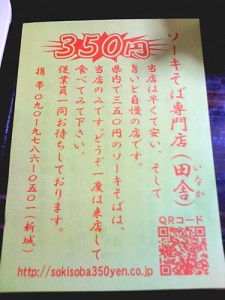 350円
ソーキそば専門店(田舎)
いなか
当店は早くて安い、そして
旨いと自慢の店です。
県内で三五〇円のソーキそばは、
当店のみです。どうぞ一度は来店して
食べてみて下さい。
従業員一同お待ちしております。
携帯〇九〇-九七八六-〇五〇一(新城)
QRコード
http://sokisoba350yen.co.jp